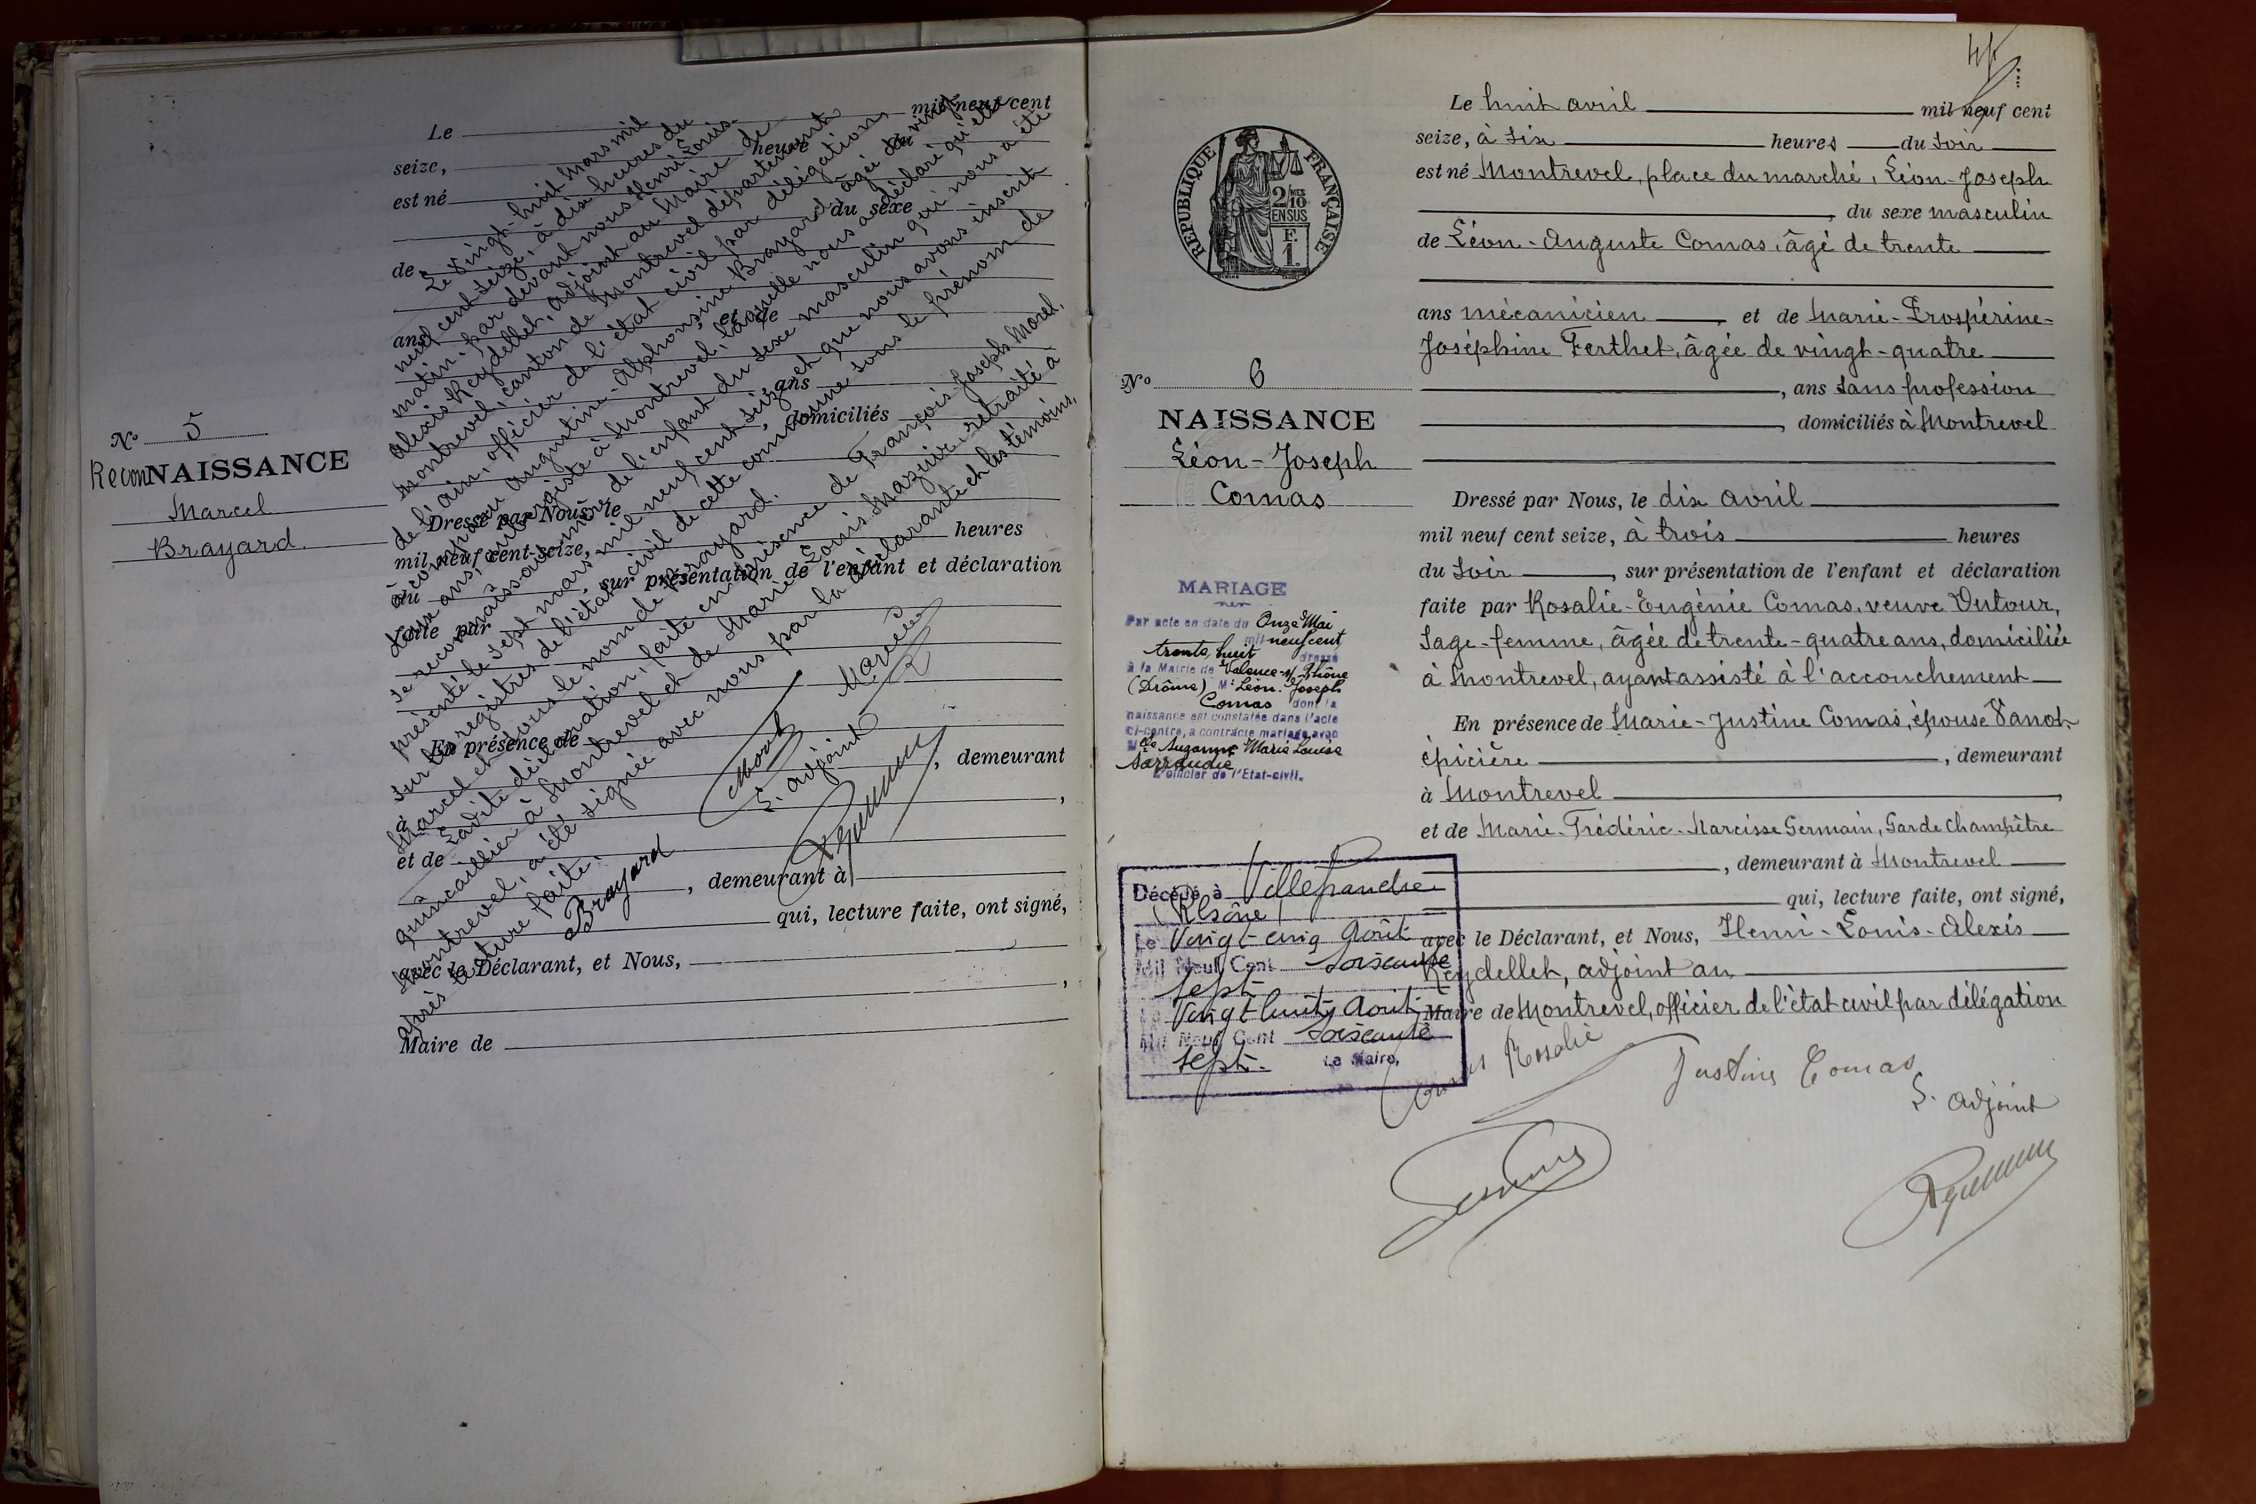 N° 5
ReconNAISSANCE
Marcel
Brayard.
Le mil neuf cent
seize, heure du
est né
du sexe
de
ans et de
ans
domiciliés
Dressé par Nous, le
mil neuf cent seize, heures
du sur présentation de l'enfant et déclaration
faite par
En présence de
, demeurant
à ,
et de
, demeurant à
qui, lecture faite, ont signé,
avec le Déclarant, et Nous,
,
Maire de
Le vingt-huit mars mil
neuf cent seize, à dix heures du
matin, par devant nous Henri Louis
Alexis Reydellet, adjoint au Maire de
Montrevel, canton de Montrevel département
de l'Ain, officier de l'état civil par délégation,
a comparu Augustine-Alphonsine Brayard âgée de vingt
deux ans, à Montrevel, laquelle nous a déclaré qu'elle
se reconnaissait mère de l'enfant du sexe masculin qui nous a été
présenté le sept mars mil neuf cent seize, et que nous avons inscrit
sur les registres de l'état civil de cette commune sous le prénom de
Marcel et sous le nom de Brayard.
Ladite déclaration, faite en présence de François Joseph Morel,
quincaillier à Montrevel et de Marie Louis Mazuir, retraité à
Montrevel, a été signée avec nous par la déclarante et les témoins,
après lecture faite.
Brayard
Morel
L. adjoint
4
REPUBLIQUE FRANÇAISE
2/10 EN SUS
F.
1.
N° 6
NAISSANCE
Léon-Joseph
Comas
MARIAGE
Par acte en date du Onze Mai
mil neuf cent
trente huit dressé
à la Mairie de Valence s/ Rhône
(Drôme) Mr Léon-Joseph
Comas dont la
naissance est constatée dans l'acte
ci-contre, a contracté mariage avec
Melle Suzanne Marie Louise
Sarraudie
L'officier de l'Etat-civil.
Décédé à Villefranche
(Rhône)
Le Vingt-cinq Août
Mil Neuf Cent Soixante
sept
Le Vingt huit Août
Mil Neuf Cent Soixante
sept. Le Maire,
Le huit avril mil neuf cent
seize, à six heures du soir
est né Montrevel, place du marché, Léon-Joseph
, du sexe masculin
de Léon-Auguste Comas, âgé de trente
ans mécanicien , et de Marie-Prospérine-
Joséphine Ferthet, âgée de vingt-quatre
, ans sans profession
, domiciliés à Montrevel
Dressé par Nous, le dix avril
mil neuf cent seize, à trois heures
du soir , sur présentation de l'enfant et déclaration
faite par Rosalie-Eugénie Comas, veuve Dutour,
sage-femme, âgée de trente-quatre ans, domiciliée
à Montrevel, ayant assisté à l'accouchement
En présence de Marie-Justine Comas, épouse
épicière , demeurant
à Montrevel ,
et de Marie-Frédéric-Narcisse Germain, Garde Champêtre
, demeurant à Montrevel
qui, lecture faite, ont signé,
avec le Déclarant, et Nous, Henri-Louis-Alexis
Reydellet, adjoint au
Maire de Montrevel, officier de l'état civil par délégation
Comas Rosalie
Justine Comas
L. adjoint